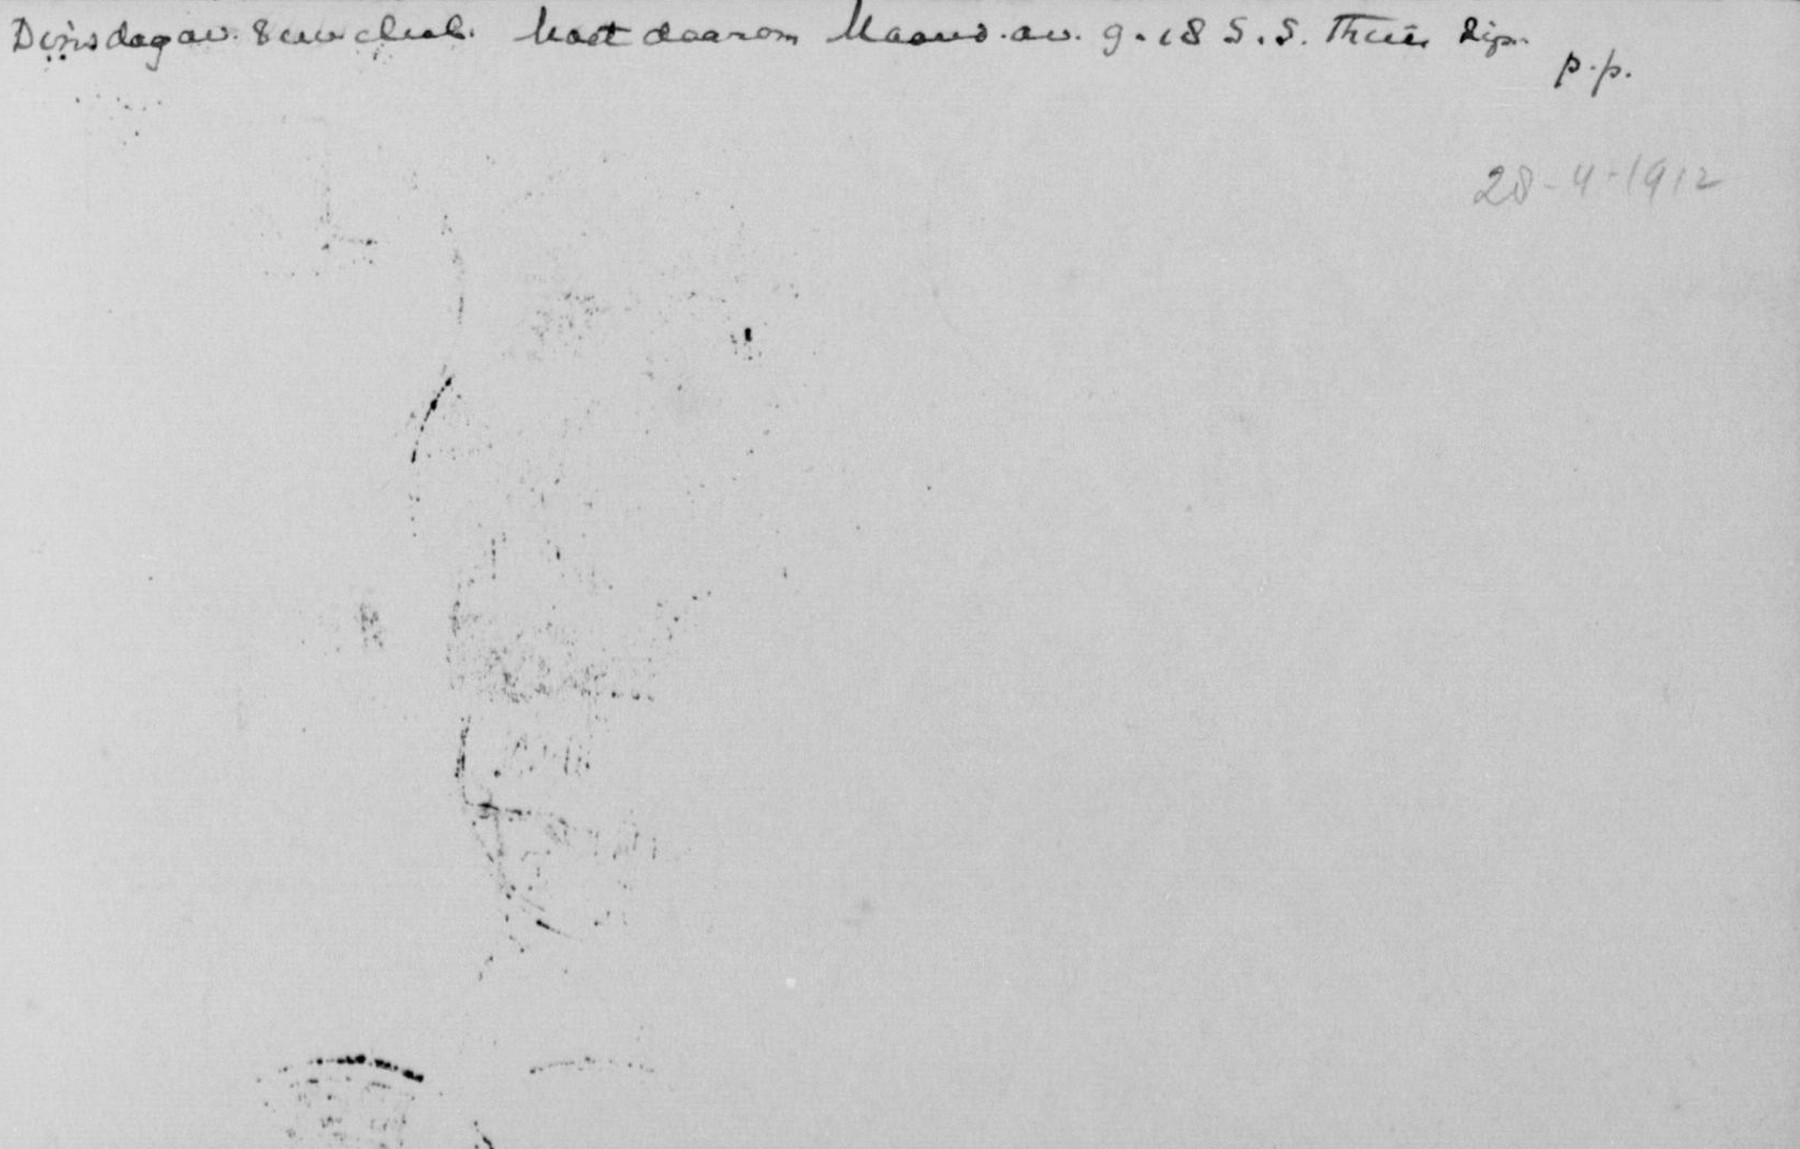 Dinsdagav. 8 uur club. Moet daarom Maand. av. 9.18 S.S. Thuis zijn.
p.p.
28-4-1912